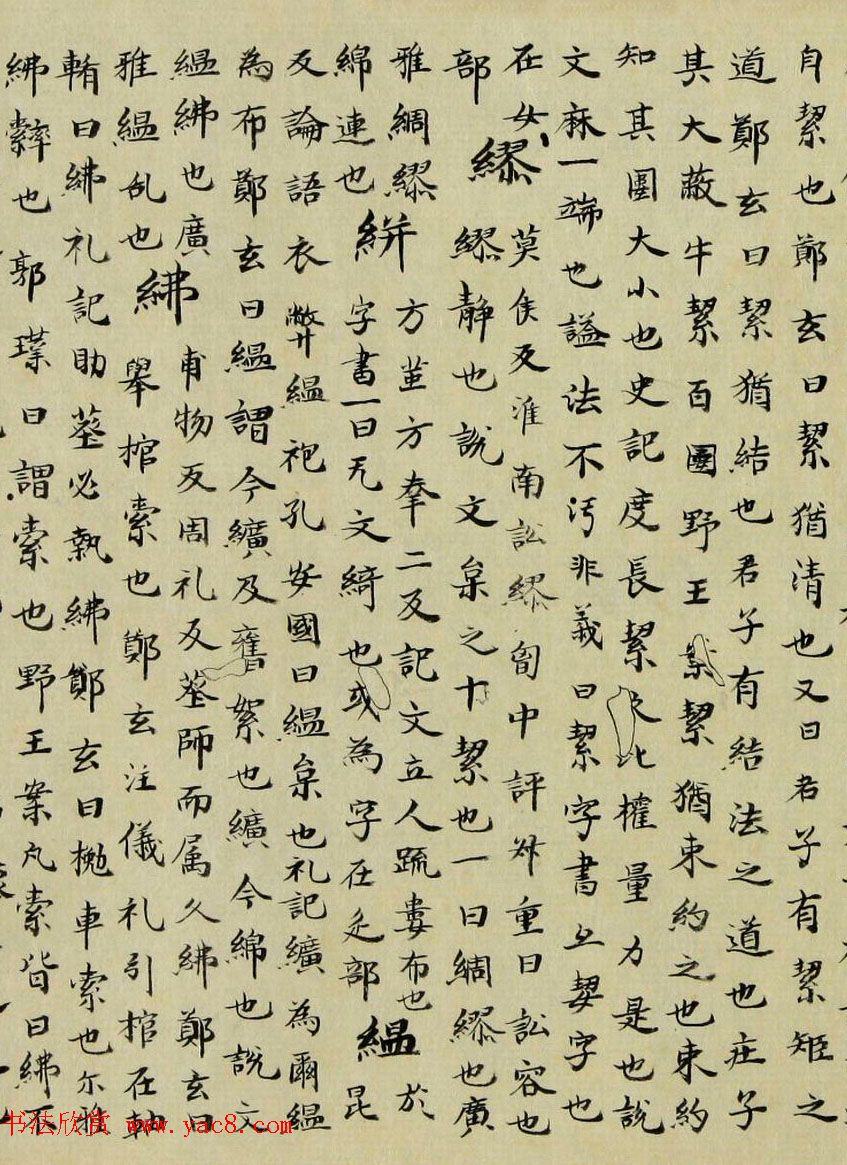 自絜也鄭玄曰絜猶清也又曰君子有絜矩之
道鄭玄曰絜猶結也君子有結法之道也庄子
其大蔽牛絜百圍野王案絜猶束約之也束約
知其圍大小也史記度長絜大比權量力是也說
文麻一端也謚法不汚非義曰絜字書亦契字也
在女部
繆 莫侯反淮南訟繆匈中評叔重曰訟容也
繆靜也說文枲之十絜也一曰綢繆也廣
雅綢繆
綿連也
絣 方莖方拳二反記文立人䟽婁布也
字書一曰无文綺也或為字在疋部
緼 於昆
反論語衣弊緼袍孔安國曰緼枲也礼記纊為爾緼
為布鄭玄曰緼謂今纊及舊絮也纊今綿也說文
緼紼也廣
雅緼乱也
紼 甫物反周礼及塟師而属久紼鄭玄曰
舉棺索也鄭玄注儀礼引棺在軸
輴曰紼礼記助塟必執紼鄭玄曰㧢車索也尒雅
紼䋁也郭璞曰謂索也野王案凡索皆曰紼不
书法欣赏 www.yac8.com